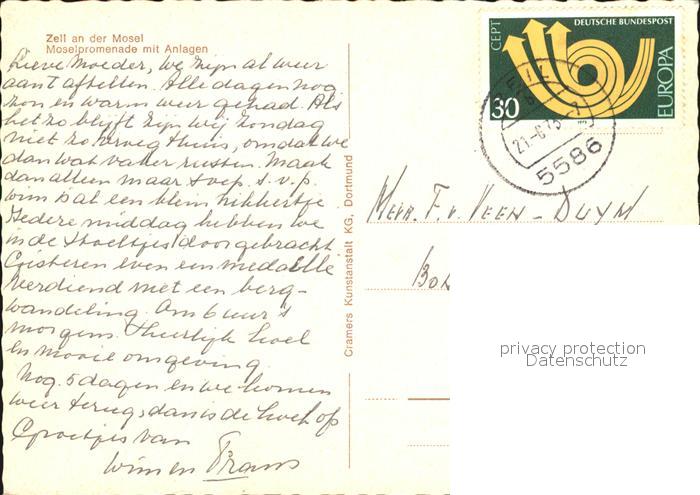 Zell an der Mosel
Moselpromenade mit Anlagen
Lieve Moeder, we zijn al weer
aan't aftellen. Alle dagen nog
zon en warm weer gehad. Als
het zo blijft zijn wij zondag
niet zo vroeg thuis, omdat we
dan wat vaker rusten. Maak
dan alleen maar soep. s.v.p.
Wim is al een klein nikkertje
Iedere middag hebben we
in de stoeltjes doorgebracht
Gisteren even een medaille
verdiend met een berg-
wandeling. Om 6 uur 's
morgens. Heerlijk koel
en mooie omgeving.
Nog 5 dagen en we komen
weer terug, dan is de koek op
Groetjes van
Wim en Frans
Cramers Kunstanstalt KG, Dortmund
CEPT
DEUTSCHE BUNDESPOST
EUROPA
30
21-6.73
5586
Mevr. F. v. Veen - Duym
privacy protection
Datenschutz